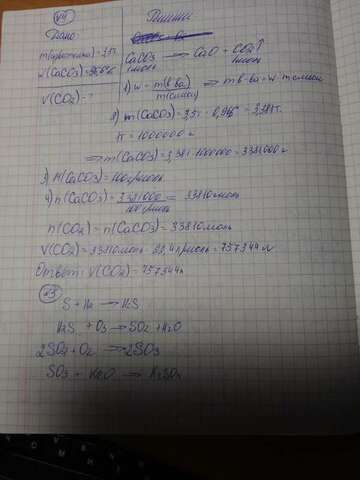 №4
Дано
m(известняка)=3,5т
w(CaCO3)=96,6%
V(CO2) - ?
Решение
CaCO3 → CaO + CO2↑
1моль 1моль
1) w = m(в-ва)/m(смеси) ⇒ m в-ва = w · m смеси
2) m(CaCO3) = 3,5т · 0,966 = 3,381т.
1т = 1000000г
⇒ m(CaCO3) = 3,381 · 1000000 = 3381000г
3) M(CaCO3) = 100г/моль
4) n(CaCO3) = 3381000/100г/моль = 33810моль
n(CO2) = n(CaCO3) = 33810моль
V(CO2) = 33810моль · 22,4л/моль = 757344л
Ответ: V(CO2) = 757344л
№5
S + H2 → H2S
H2S + O3 → SO2 + H2O
2SO2 + O2 → 2SO3
SO3 + H2O → H2SO4